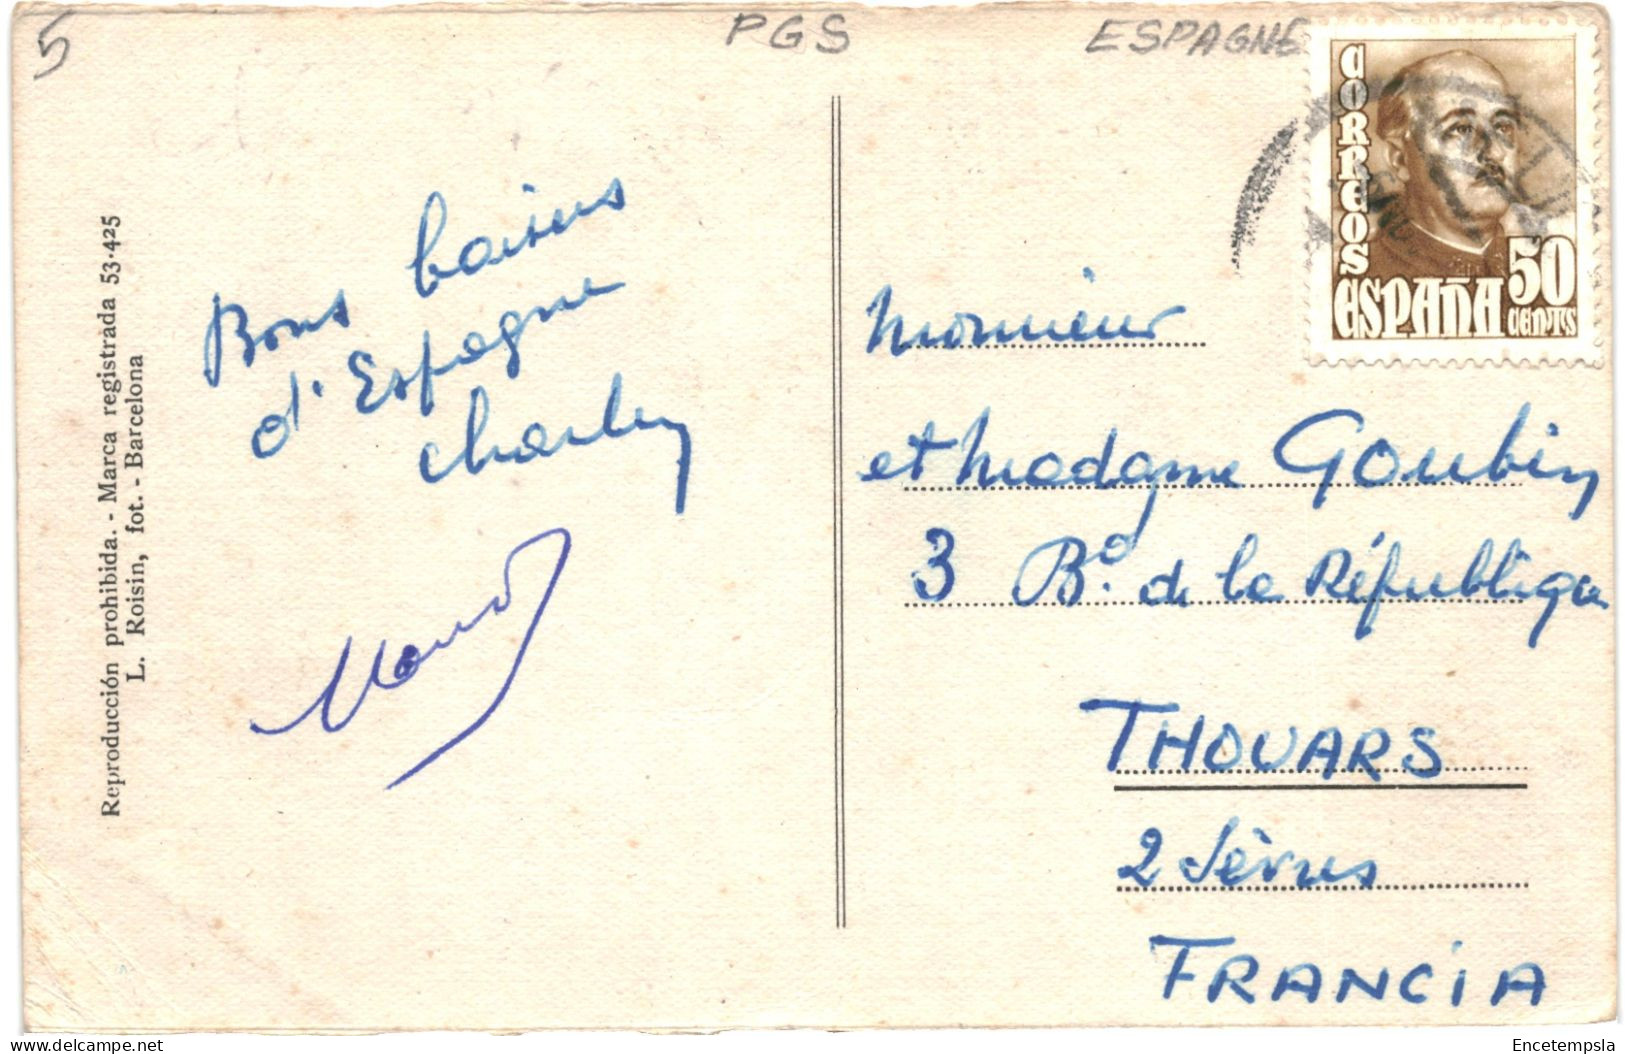 5
PGS
ESPAGNE
CORREOS
ESPAÑA
50
CENTS
Reproducción prohibida. - Marca registrada 53-425
L. Roisin, fot. - Barcelona
Bons baisers
d'Espagne
Charley
Monsieur
et Madame Goubin
3 Bd. de la République
THOUARS
2 Sèvres
FRANCIA
Encetempsla